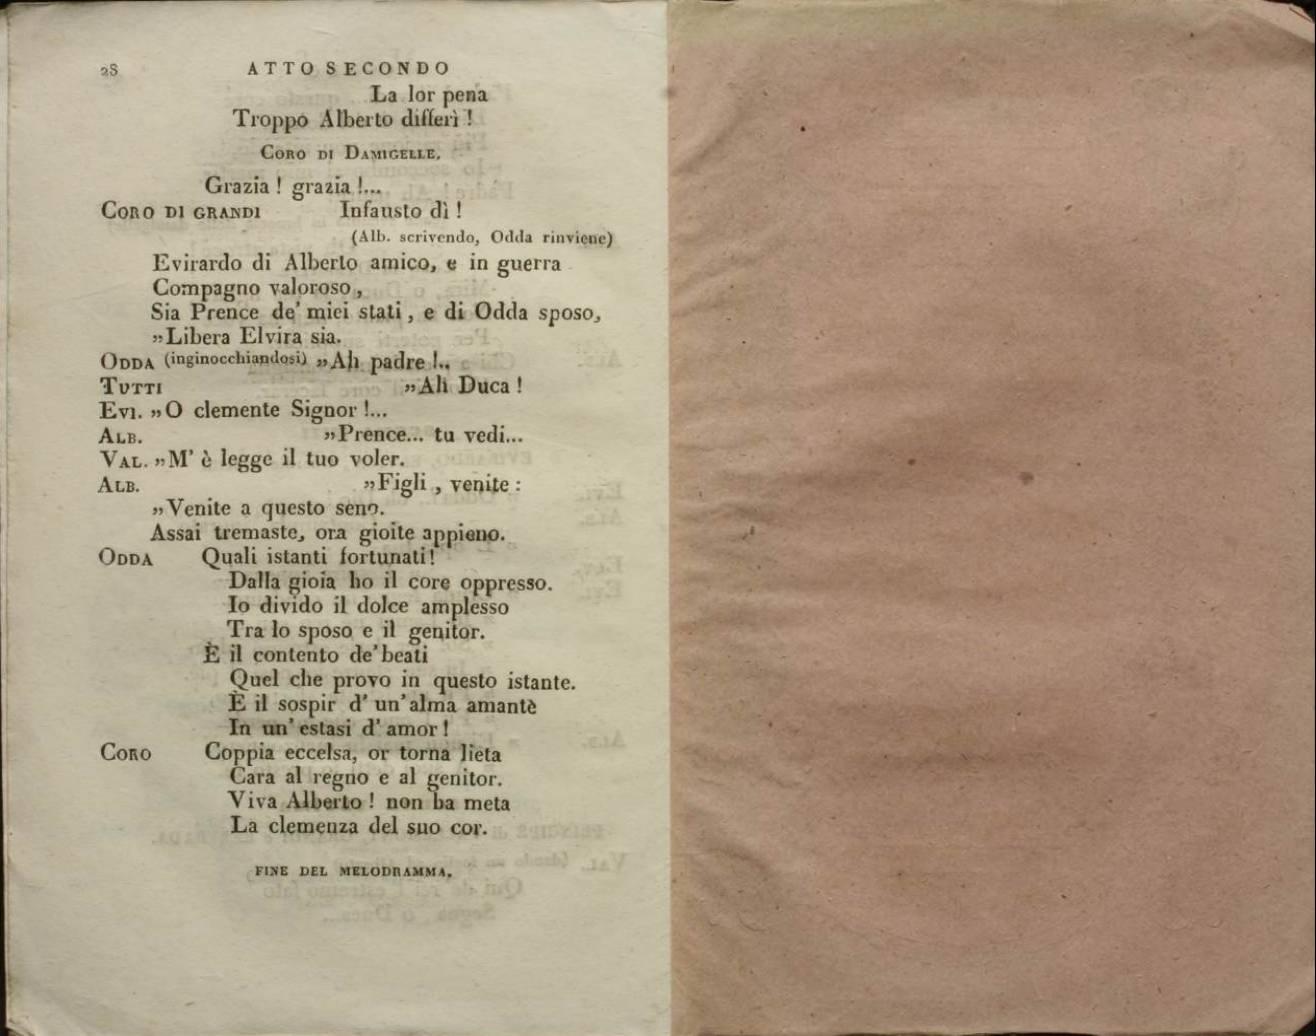 28 ATTO SECONDO
La lor pena
Troppo Alberto differì !
CORO DI DAMIGELLE.
Grazia ! grazia !...
CORO DI GRANDI Infausto dì !
(Alb. scrivendo, Odda rinviene)
Evirardo di Alberto amico, e in guerra
Compagno valoroso,
Sia Prence de' miei stati, e di Odda sposo,
„Libera Elvira sia.
ODDA (inginocchiandosi) „Ah padre !..
TUTTI „Ah Duca !
EVI. „O clemente Signor !...
ALB. „Prence... tu vedi...
VAL. „M' è legge il tuo voler.
ALB. „Figli, venite :
„Venite a questo seno.
Assai tremaste, ora gioite appieno.
ODDA Quali istanti fortunati!
Dalla gioia ho il core oppresso.
Io divido il dolce amplesso
Tra lo sposo e il genitor.
È il contento de' beati
Quel che provo in questo istante.
È il sospir d' un' alma amantè
In un' estasi d' amor !
CORO Coppia eccelsa, or torna lieta
Cara al regno e al genitor.
Viva Alberto ! non ha meta
La clemenza del suo cor.
FINE DEL MELODRAMMA.